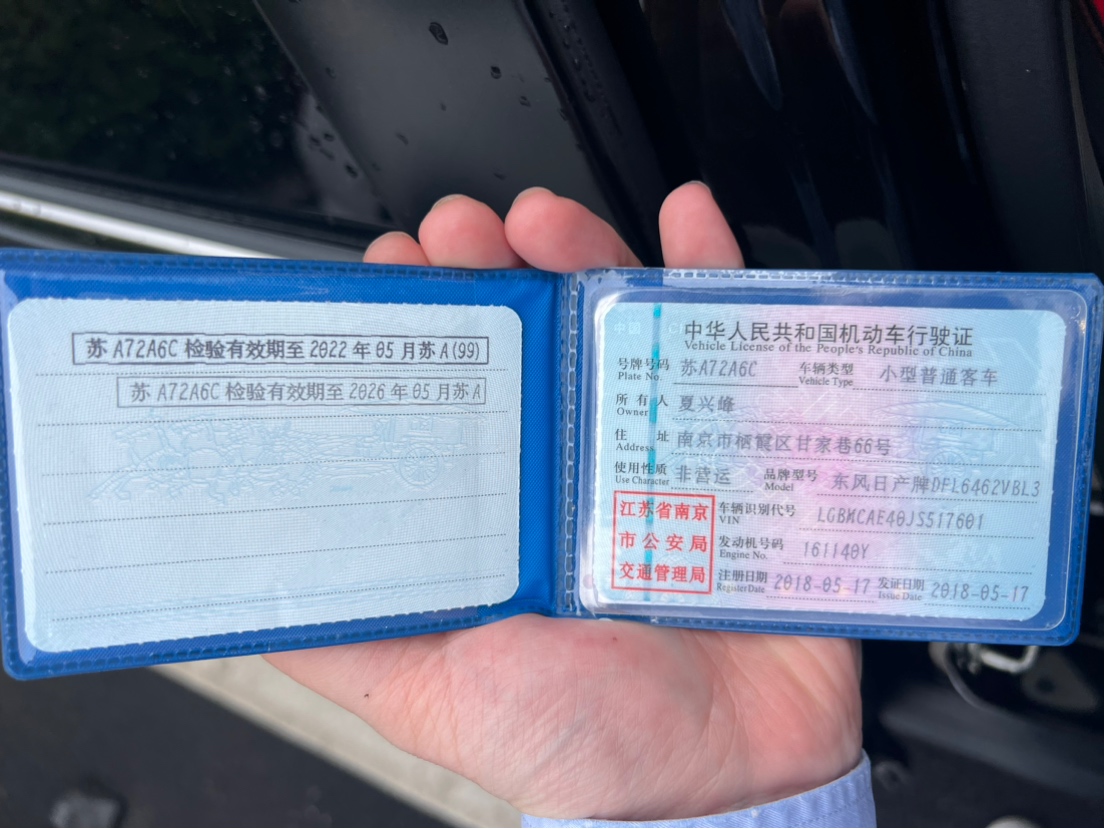 苏A72A6C检验有效期至2022年05月苏A(99)
苏A72A6C检验有效期至2026年05月苏A
中华人民共和国机动车行驶证
Vehicle License of the People's Republic of China
号牌号码 苏A72A6C 车辆类型 小型普通客车
Plate No. Vehicle Type
所有人 夏兴峰
Owner
住址 南京市栖霞区甘家巷66号
Address
使用性质 非营运 品牌型号 东风日产牌DFL6462VBL3
Use Character Model
江苏省南京
市公安局
交通管理局
车辆识别代号 LGBKCAE40JS517601
VIN
发动机号码 161140Y
Engine No.
注册日期 2018-05-17 发证日期 2018-05-17
Register Date Issue Date